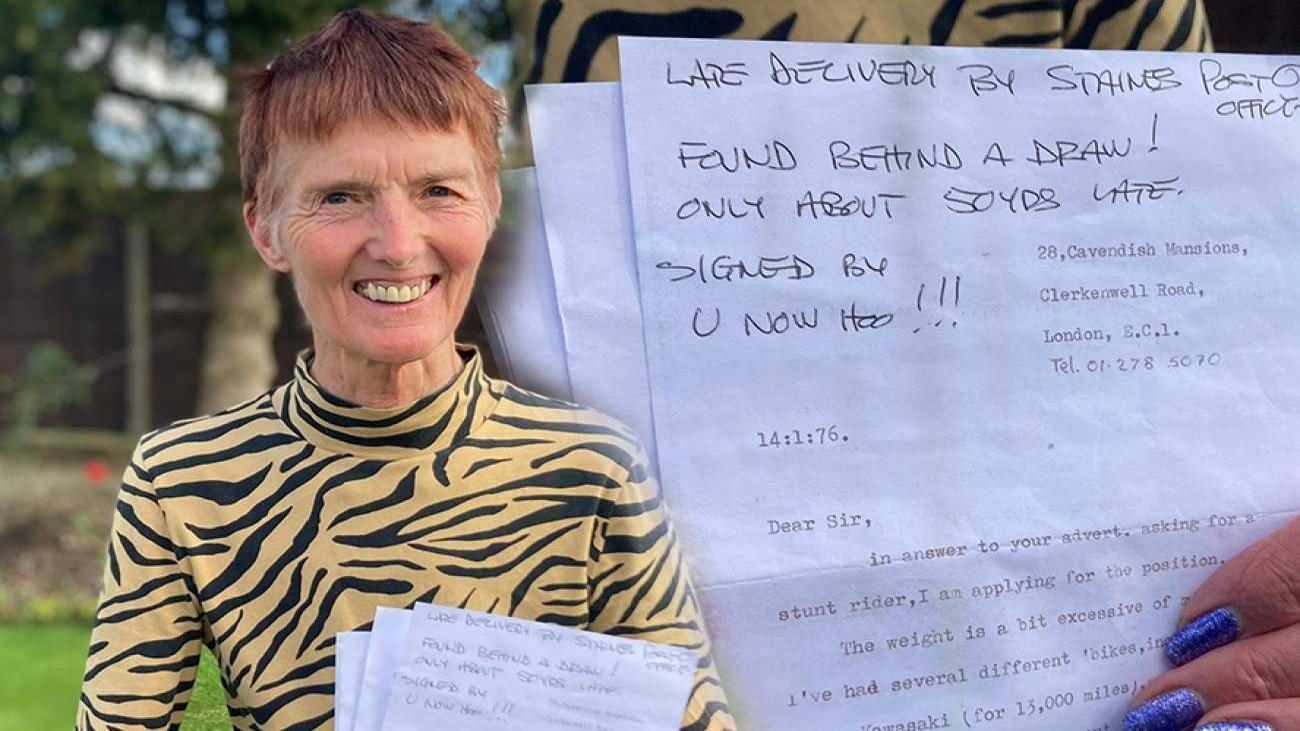 LATE DELIVERY BY STAINES POST O
OFFICE
FOUND BEHIND A DRAW!
ONLY ABOUT 50YRS LATE.
SIGNED BY
U NOW HOO !!!
28,Cavendish Mansions,
Clerkenwell Road,
London, E.C.1.
Tel. 01-278 5070
14:1:76.
Dear Sir,
in answer to your advert. asking for a
stunt rider,I am applying for the position.
The weight is a bit excessive of
I've had several different 'bikes,in
Kawasaki (for 13,000 miles).
LATE DELIVERY BY STAINES POST
OFFICE
FOUND BEHIND A DRAW!
ONLY ABOUT 50YRS LATE
SIGNED BY
U NOW HOO !!!